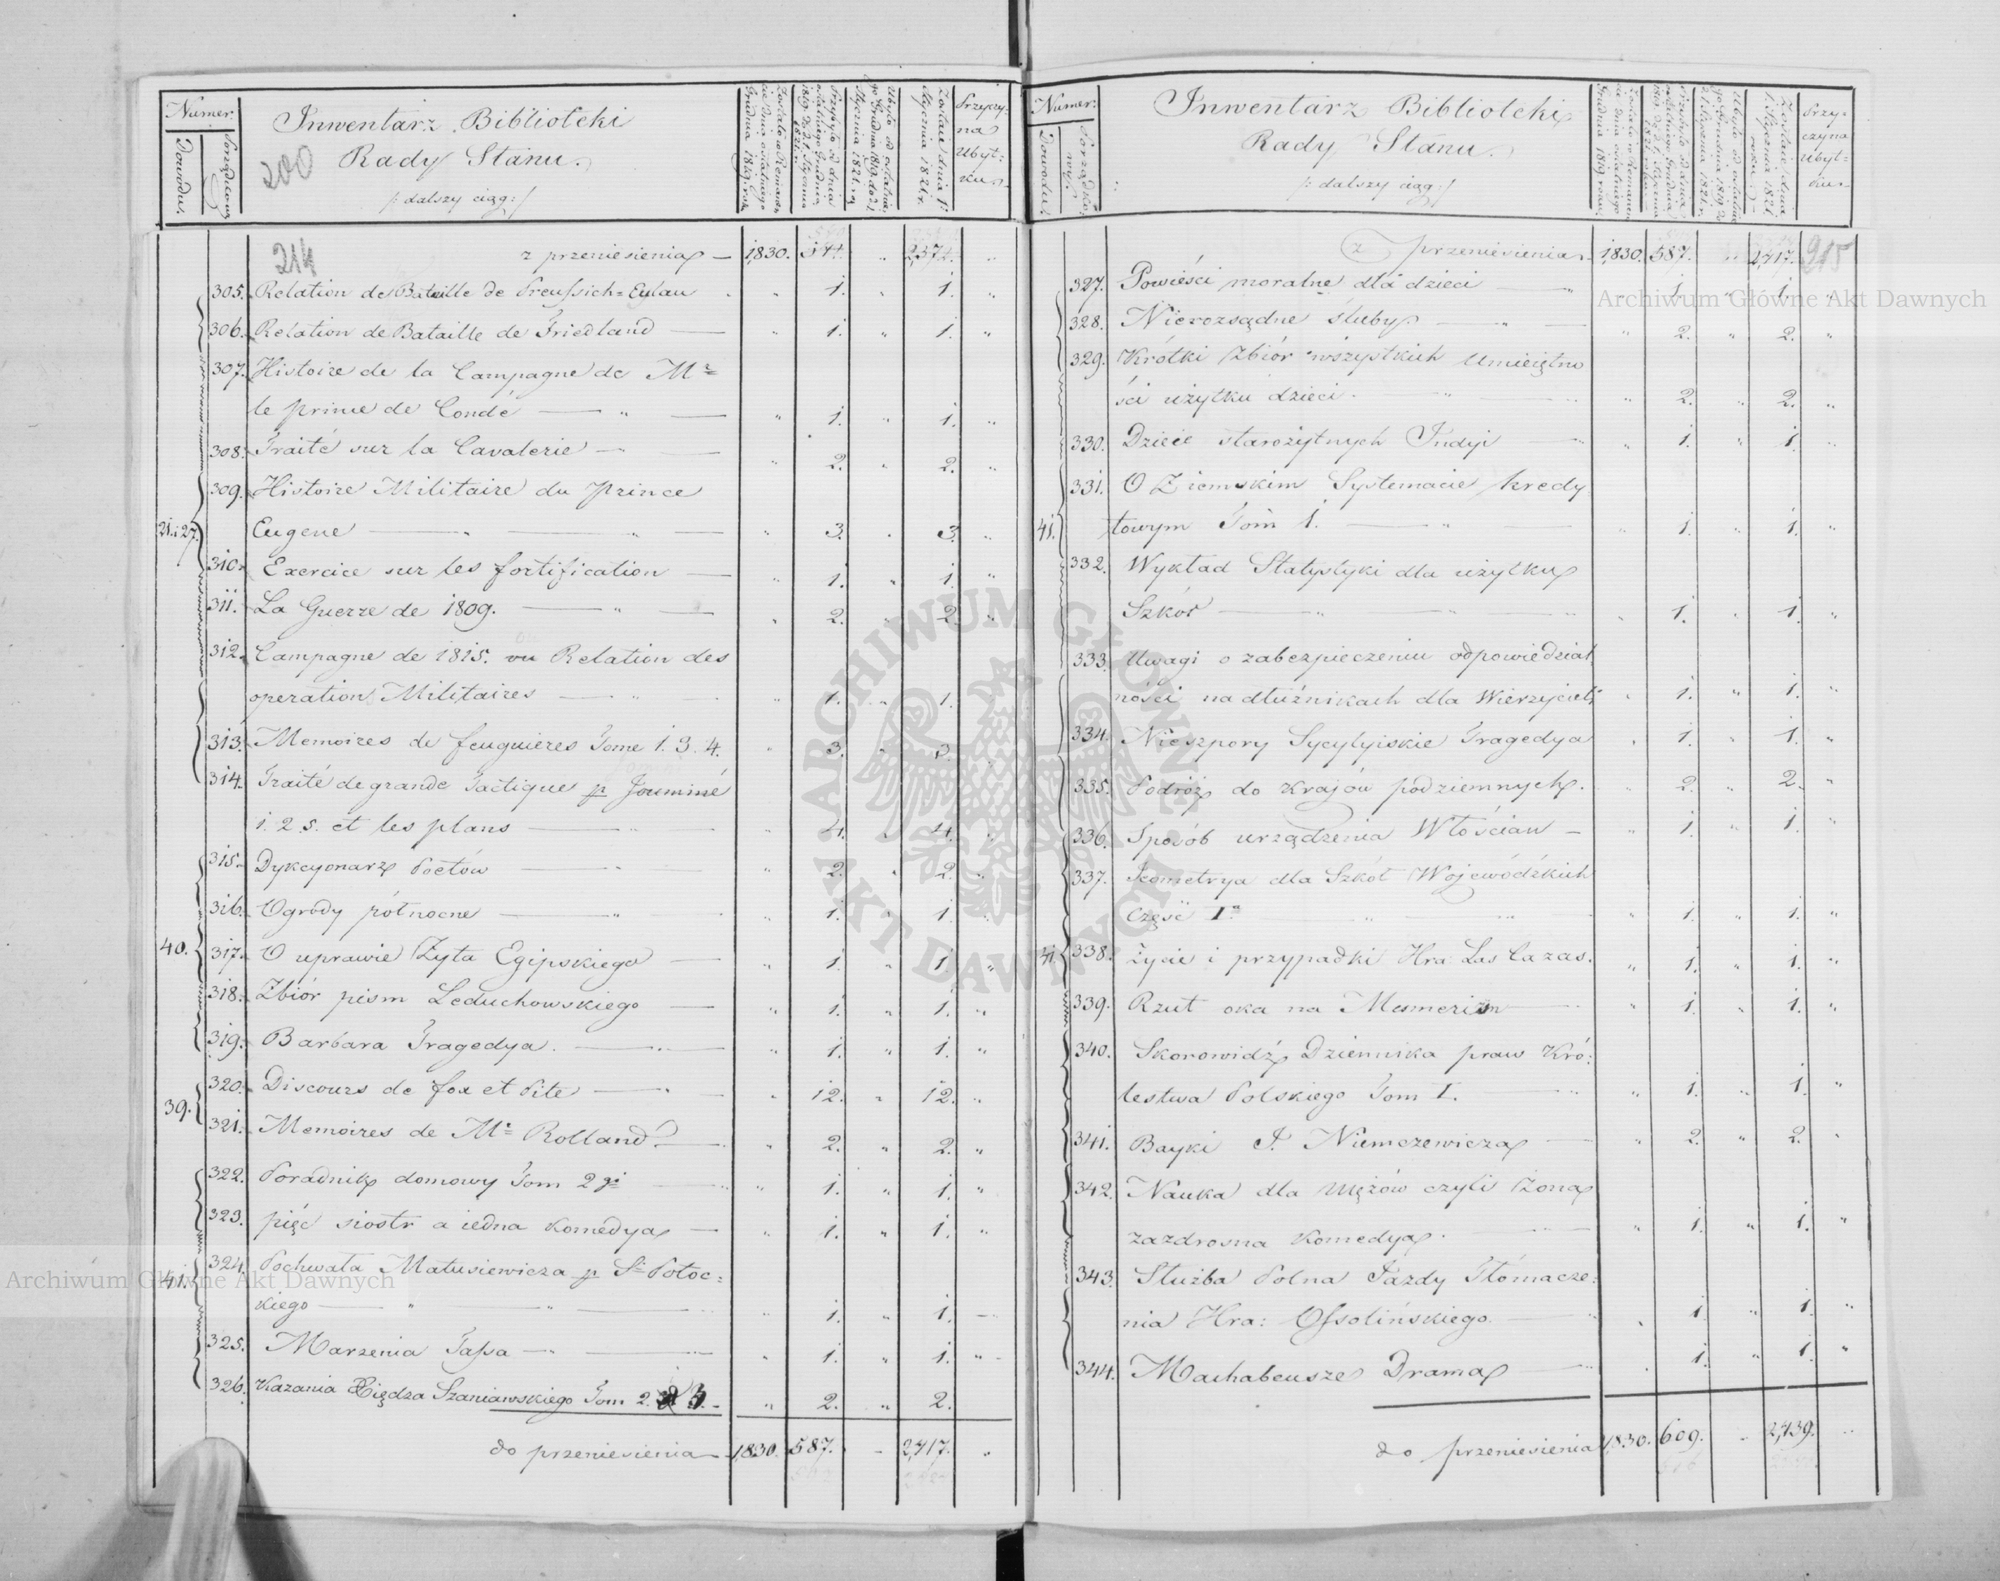 Numer.
Dowodu.
Porządkowy
Inwentarz Biblioteki
Rady Stanu.
/: dalszy ciąg :/
200
Przyczy-
na
Ubyt-
ku
214
z przeniesienia — 1,830. 544. " 2,374. "
305. Relation de Bataille de Preussich=Eylau " 1. " 1. "
306. Relation de Bataille de Friedland — " 1. " 1. "
307. Histoire de la Campagne de Mr
le prince de Condé — " — " 1. " 1. "
308. Traité sur la Cavalerie — " 2. " 2. "
309. Histoire Militaire du Prince
21. i 27. Eugene — " — " 3. " 3. "
310. Exercice sur les fortification — " 1. " 1. "
311. La Guerre de 1809. — " — " 2. " 2. "
312. Campagne de 1815. ou Relation des
operation Militaires — " 1. " 1. "
313. Memoires de feuguieres Tome 1. 3. 4. " 3. " 3. "
314. Traité de grande Tactique p Jouminé
1. 2. 5. et les plans — " 4. " 4. "
315. Dykcyonarz Poetów — " 2. " 2. "
316. Ogrody północne — " 1. " 1. "
40. 317. O uprawie Żyta Egipskiego — " 1. " 1. "
318. Zbiór pism Leduchowskiego — " 1. " 1. "
319. Barbara Tragedya. — " 1. " 1. "
320. Discours de fox et Pite — " 12. " 12. "
39.
321. Memoires de Mr Rolland — " 2. " 2. "
322. Poradnik domowy Tom 2gi — " 1. " 1. "
323. pięć siostr a iedna Komedya — " 1. " 1. "
41. 324. Pochwała Matusiewicza p St Potoc=
kiego — " — " 1. " 1. —
325. Marzenia Tassa — " — " 1. " 1. "
326. Kazania Xiędza Szaniawskiego Tom 2. i 3. — " 2. " 2.
do przeniesienia — 1,830. 587. " 2,417. "
Numer.
Dowodu.
Porządko-
wy
Inwentarz Biblioteki
Rady Stanu.
/: dalszy ciąg :/
Przy-
czyna
Ubyt=
ku
z przeniesienia. 1,830. 587. " 2,417. 215
327. Powieści moralne dla dzieci — " 1. " 1. "
328. Nierozsądne śluby — " 2. " 2. "
329. Krótki Zbiór wszystkich Umieiętno
ści użytku dzieci. " 2. " 2. "
330. Dzieie starożytnych Indyi " 1. " 1. "
331. O Ziemskim Systemacie kredy
41. towym Tom 1. — " 1. " 1. "
332. Wykład Statystyki dla użytku
Szkół — " 1. " 1. "
333. Uwagi o zabezpieczeniu odpowiedzial
ności na dłużnikach dla Wierzycieli " 1. " 1. "
334. Nieszpory Sycylyiskie Tragedya " 1. " 1. "
335. Podróż do Krajów podziemnych. " 2. " 2. "
336. Sposób urządzenia Włościan — " 1. " 1. "
337. Jeometrya dla Szkół Wojewódzkich
Część Ia " 1. " 1. "
41. 338. Życie i przypadki Hra Las Cazas. " 1. " 1. "
339. Rzut oka na Mesmerizm " 1. " 1. "
340. Skorowidz Dziennika praw Kró:
lestwa Polskiego Tom I. " 1. " 1. "
341. Bayki J. Niemczewicza — " 2. " 2. "
342. Nauka dla Mężów czyli Żona
zazdrosna Komedya. " 1. " 1. "
343. Służba Polna Jazdy Tłómacze=
nia Hra: Ossolińskiego " 1. " 1. "
344. Machabeusze Drama — " 1. " 1. "
do przeniesienia 1,830. 609. " 2,439. "
Archiwum Główne Akt Dawnych
Archiwum Główne Akt Dawnych
ARCHIWUM GŁÓWNE AKT DAWNYCH